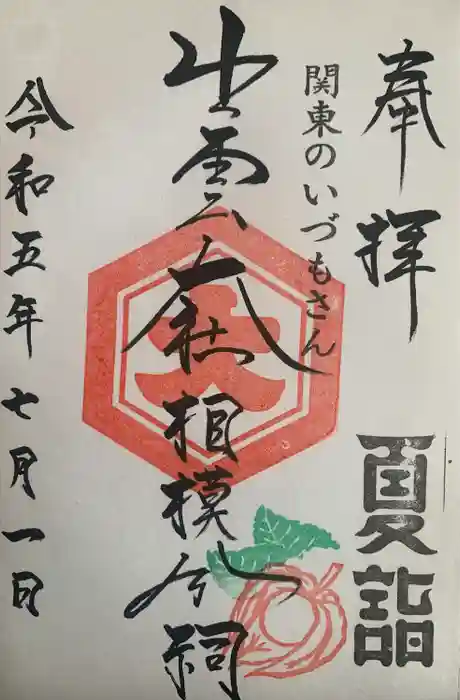 奉拝
夏詣
関東のいづもさん
出雲大社相模分祠
大
令和五年七月一日